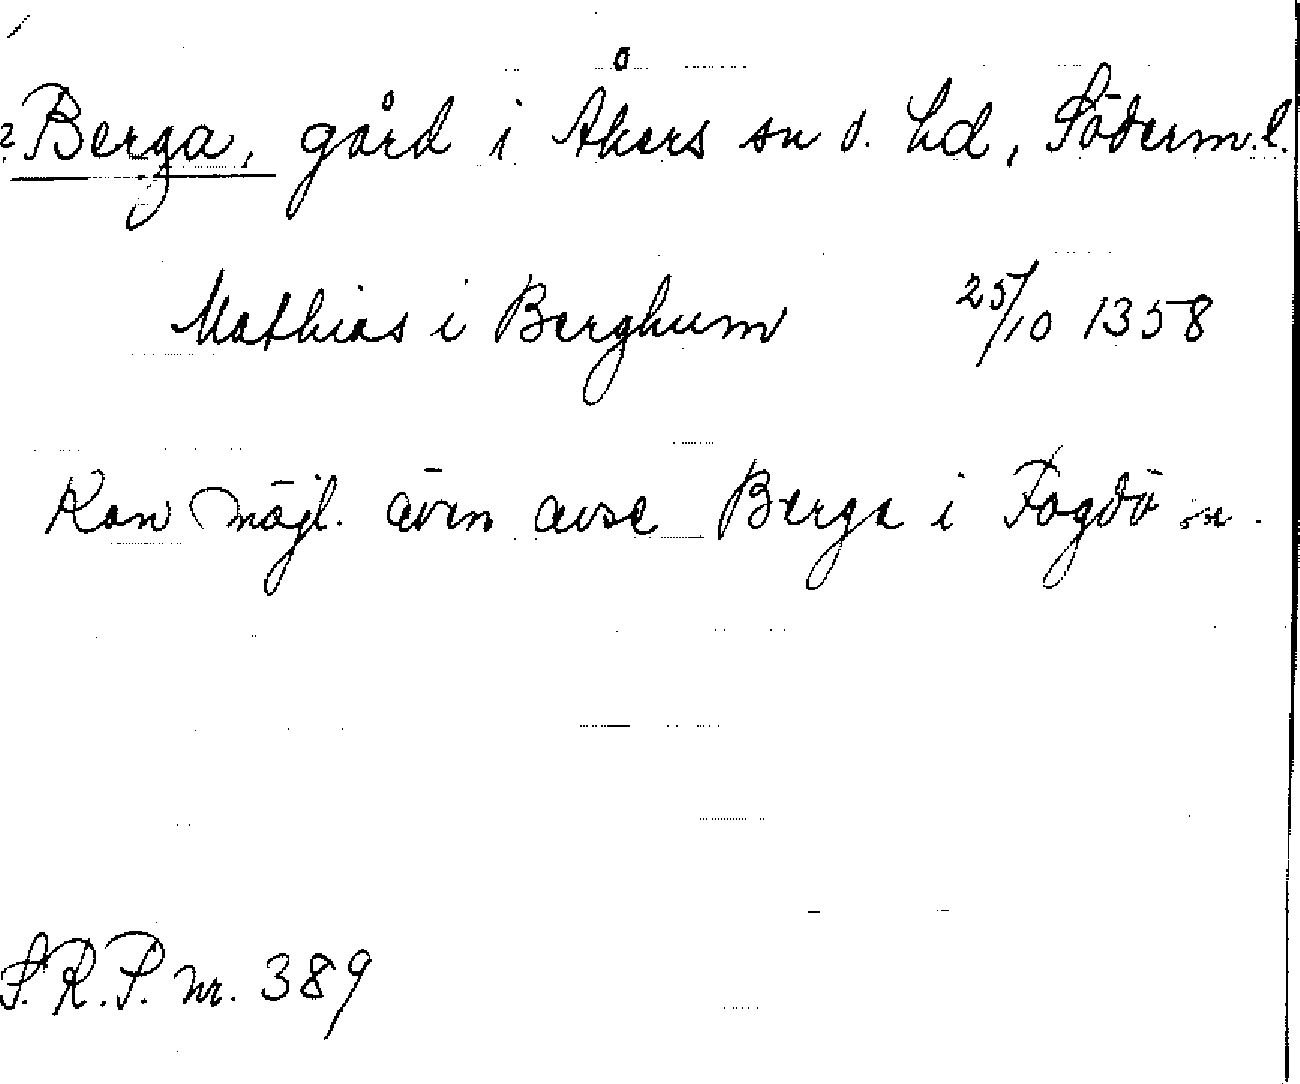 ? Berga, gård i Åkers sn o. hd, Söderm.l.
Mathias i Berghum 25/10 1358
Kan möjl. även avse Berga i Fogdö sn.
S.R.P. nr. 389